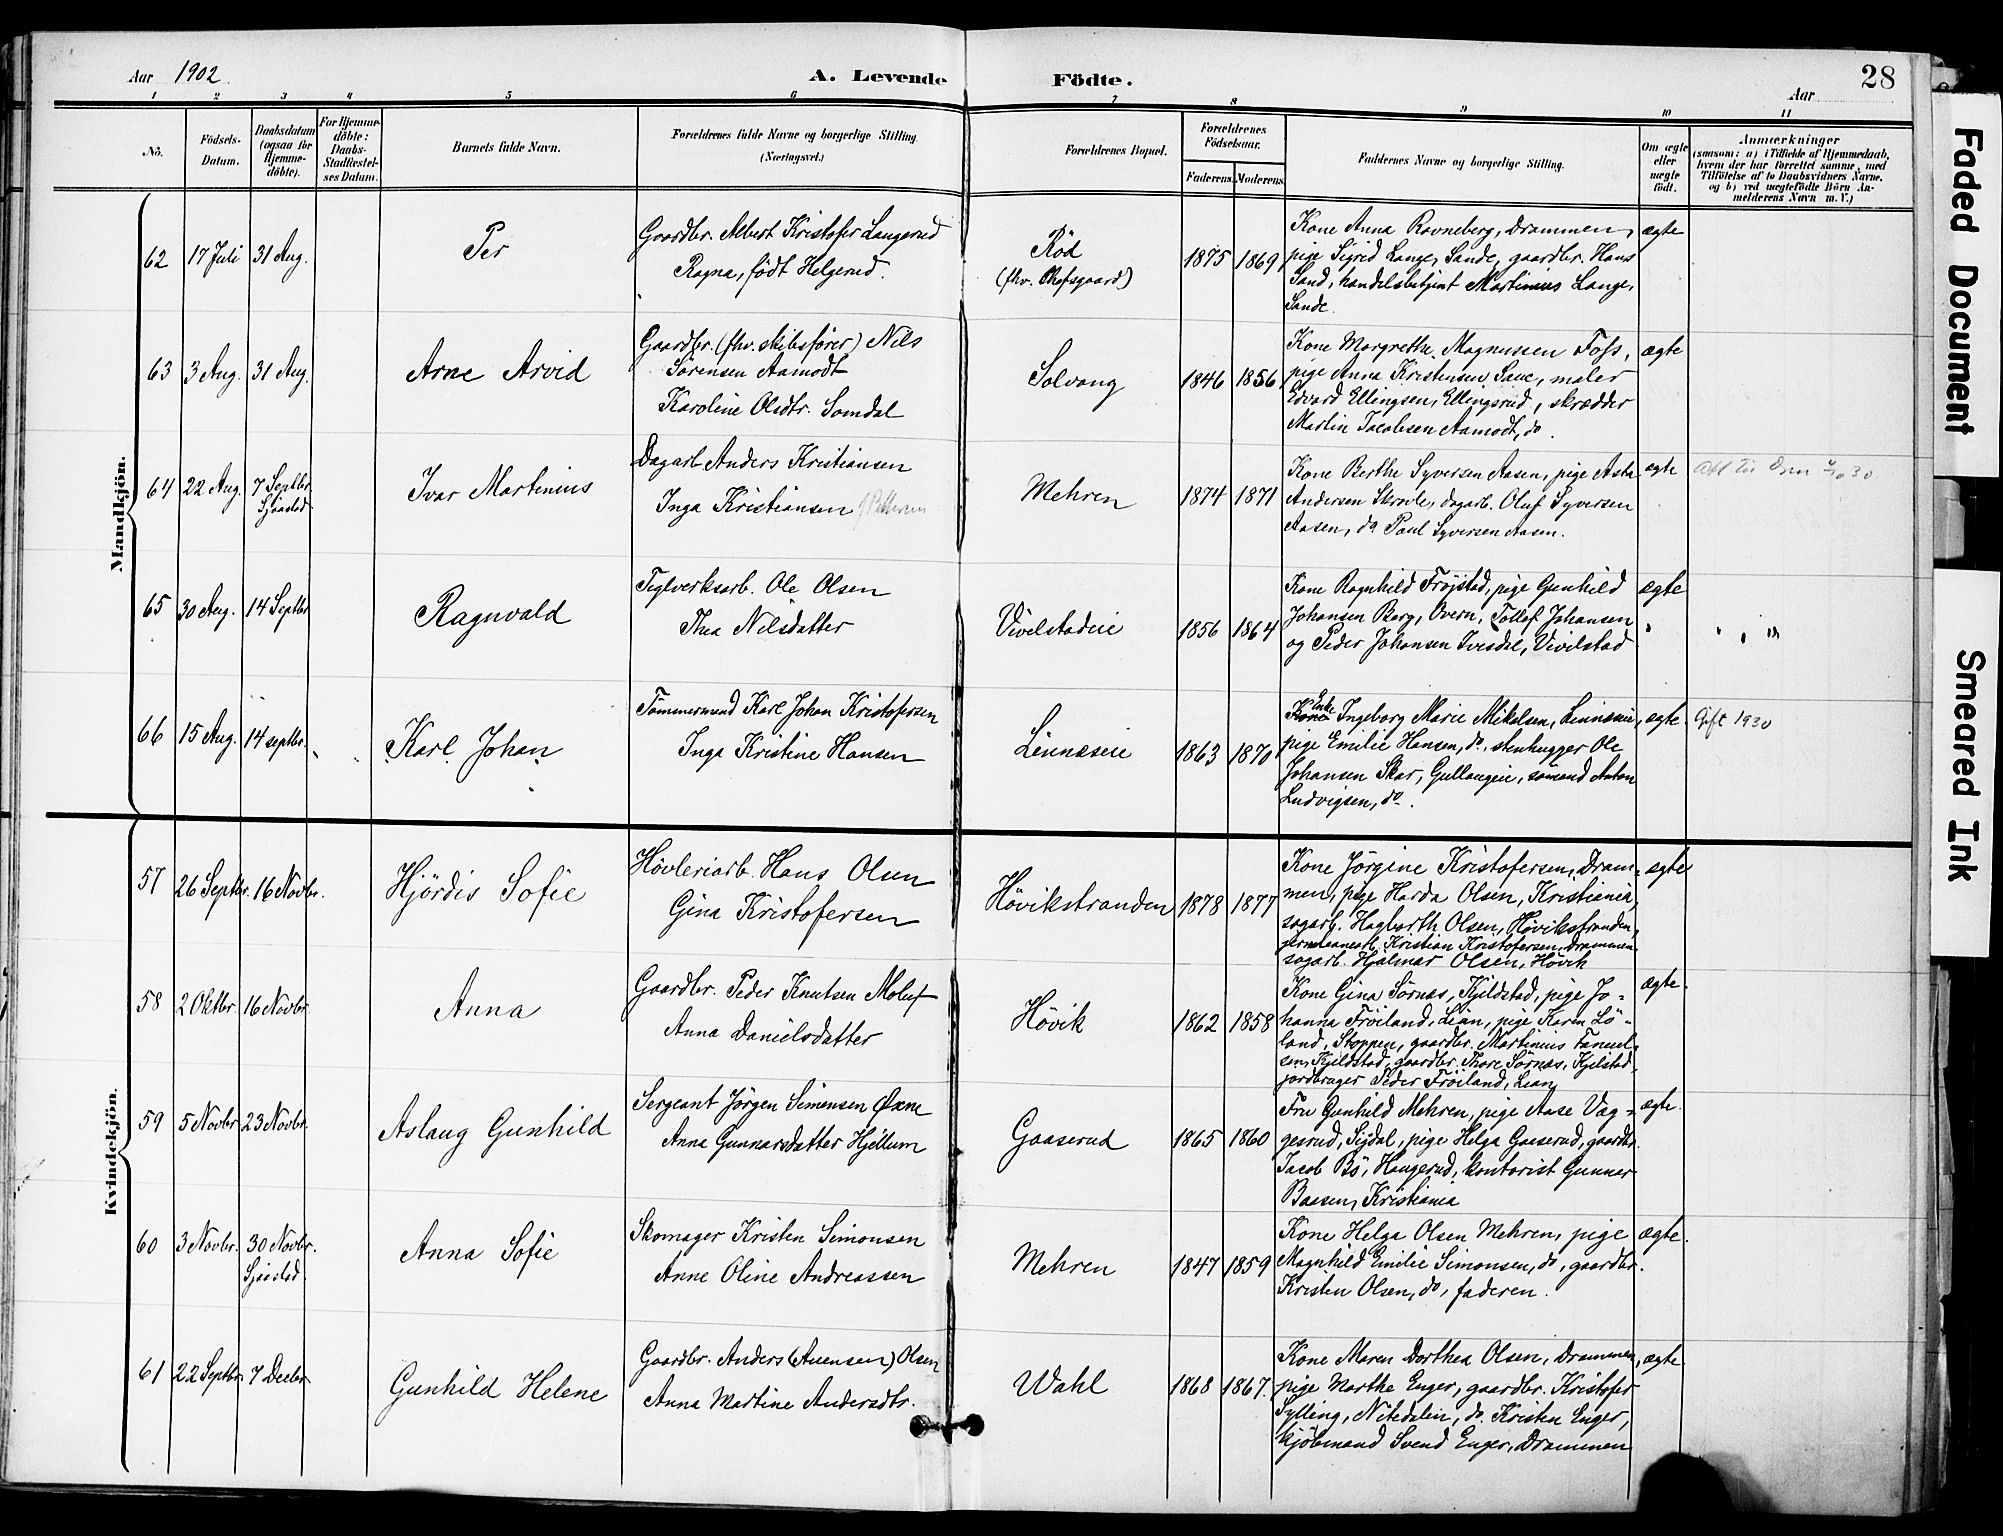 Aar 1902.
A. Levende Födte.
28
Aar
1 2 3 4 5 6 7 8 9 10 11
No.
Födsels-Datum.
Daabsdatum (ogsaa for Hjemme-döbte).
For Hjemme-döbte: Daabs-Stadfæstel-ses Datum.
Barnets fulde Navn.
Forældrenes fulde Navne og borgerlige Stilling.
(Næringsvei.)
Forældrenes Bopæl.
Forældrenes Födselsaar.
Faderens. Moderens.
Faddernes Navne og borgerlige Stilling.
Om ægte eller uægte födt.
Anmærkninger
(saasom: a) i Tilfælde af Hjemmedaab, hvem der har forrettet samme, med Tilföielse af to Daabsvidners Navne, og b) ved uægtefödte Börn An-melderens Navn m. V.)
Mandkjön.
62 17 Juli 31 Aug. Per
Gaardbr. Albert Kristofer Langerud
Ragna, født Helgerud.
Röd
1875 1869
Kone Anna Ravneberg, Drammen,
pige Sigrid Lange, Sande, gaardbr. Hans
Sand, handelsbetjent Martinius Lange,
Sande.
ægte
63 3 Aug. 31 Aug. Arne Arvid
Gaardbr. (fhv. skibsfører) Nils
Sørensen Aamodt
Karoline Olsdtr. Somdal
Solvang
1846 1856
Kone Margrethe Magnussen Foss,
pige Anna Kristensen Saue, maler
Edvard Ellingsen, Ellingsrud, skrædder
Martin Jacobsen Aamodt, do.
ægte
64 22 Aug. 7 Septbr Sjaastad Ivar Martinius
Dagarb. Anders Kristiansen
Inga Kristiansen
Mehren
1874 1871
Kone Berthe Syversen Aasen, pige Asta
Andersen dagarb. Oluf Syversen
Aasen, do Paul Syversen Aasen.
ægte
65 30 Aug. 14 Septbr Ragnvald
Teglverksarb. Ole Olsen
Thea Nilsdatter
Vivelstadeie
1856 1864
Kone Ragnhild Frøjstad, pige Gunhild
Johansen Berg, Overn, Tollef Johansen
og Peder Johansen Tvesdal, Vivilstad
ægte
66 15 Aug. 14 septbr. Karl Johan
Tømmermand Karl Johan Kristofersen
Inga Kristine Hansen
Linnæseie
1863 1870
Kone Enke Ingeborg Marie Mikelsen, Linnæseie,
pige Emilie Hansen, do. stenhugger Ole
Johansen Skar, Gullaugeie, sømand Anton
Ludvigsen, do.
ægte.
Gift 1930
Kvindekjön.
57 26 Septbr. 16 Novbr. Hjördis Sofie
Høvleriarb. Hans Olsen
Gina Kristofersen
Høvikstranden
1878 1877
Kone Jørgine Kristofersen, Dram-
men, pige Harda Olsen, Kristiania,
sagarb. Hagbarth Olsen, Høvikstranden,
Kristian Kristofersen, Drammen
sagarb. Hjalmar Olsen, Høvik
ægte
58 2 Oktbr 16 Novbr. Anna
Gaardbr. Peder Knutsen Moluf
Anna Danielsdatter
Høvik
1862 1858
Kone Gina Sørnæs, Kjildstad, pige Jo-
hanna Frøiland, Lian, pige Karen Lö-
land, Stoppen, gaardbr. Martinius
sen, Kjildstad, gaardbr. Thore Sørnæs, Kjelstad,
jordbruger Peder Frøiland, Lian
ægte.
59 5 Novbr 23 Novbr. Aslaug Gunhild
Sergeant Jørgen Simensen Øxne
Anna Gunnarsdatter Hjellum
Gaaserud
1865 1860
Fru Gunhild Mehren, pige Aase Vag-
gesrud, Sigdal, pige Helga Gaaserud, gaardbr.
Jacob Bö, Haugerud, kontorist Gunnar
Baasen, Kristiania
ægte.
60 3 Novbr. 30 Novbr. Sjaastad Anna Sofie
Skomager Kristen Simonsen
Anne Oline Andreassen
Mehren
1847 1859
Kone Helga Olsen Mehren, pige
Magnhild Emilie Simonsen, do, gaardbr.
Kristen Olsen, do, faderen.
ægte.
61 22 Septbr 7 Decbr Gunhild Helene
Gaardbr. Anders (Auensen) Olsen
Anna Martine Andersdtr.
Wahl
1868 1867.
Kone Maren Dorthea Olsen, Drammen,
pige Marthe Enger, gaardbr. Kristofer
Sylling, Nitedalen, do. Kristen Enger,
kjøbmand Svend Enger, Drammen
ægte.
Faded Document
Smeared Ink